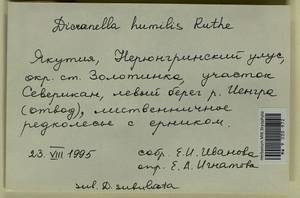 Dicranella humilis Ruthe
Якутия, Нерюнгринский улус,
окр. ст. Золотинка, участок
Северикан, левый берег р. Иенгра
(отвод), лиственничное
редколесье с ерником.
23. VIII 1995
собр. Е.И. Иванова
опр. Е.А. Игнатова
sub. D. subulata